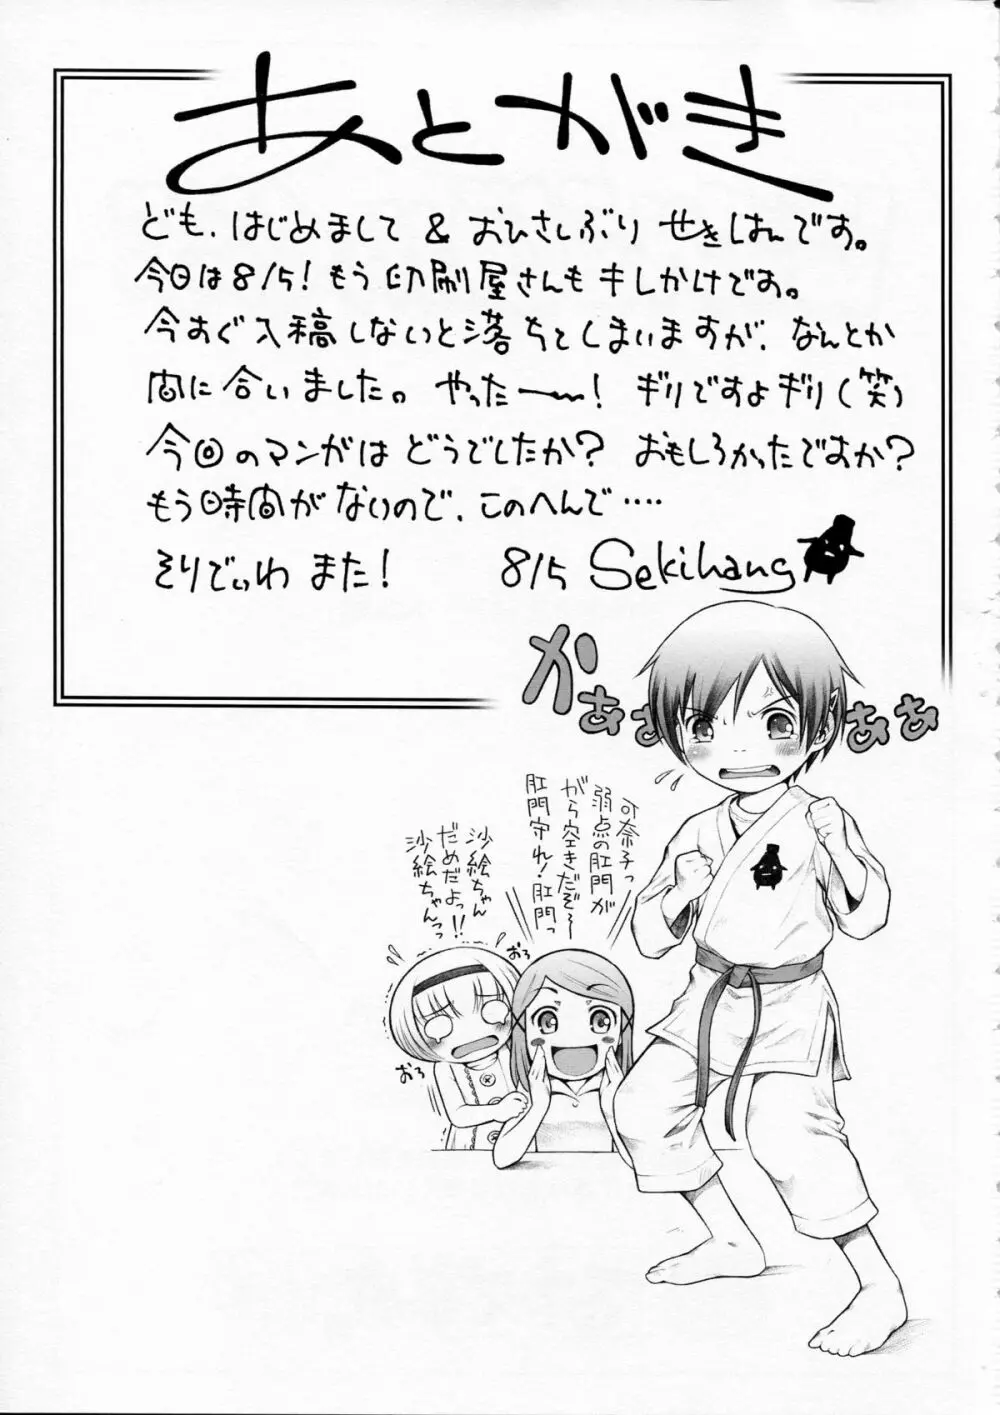 あとがき
ども、はじめまして & おひさしぶり せきはんです。
今日は8/5! もう印刷屋さんもキしかけです。
今すぐ入稿しないと落ちてしまいますが、なんとか
間に合いました。やったー〜! ギリですよギリ(笑)
今回のマンガはどうでしたか? おもしろかったですか?
もう時間がないので、このへんで‥‥
そりでぃわ また! 8/5 Sekihang
かぁぁ
ああ
可奈子っ
弱点の肛門が
がら空きだぞ〜
肛門守れ!肛門っ
沙絵ちゃん
だめだよっ!!
沙絵ちゃんっっ
おろ
おろ